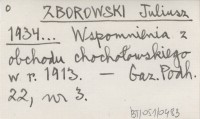 ZBOROWSKI Juliusz
1934... Wspomnienia z
obchodu chochołowskiego
w r. 1913. — Gaz. Podh.
22, nr 3.